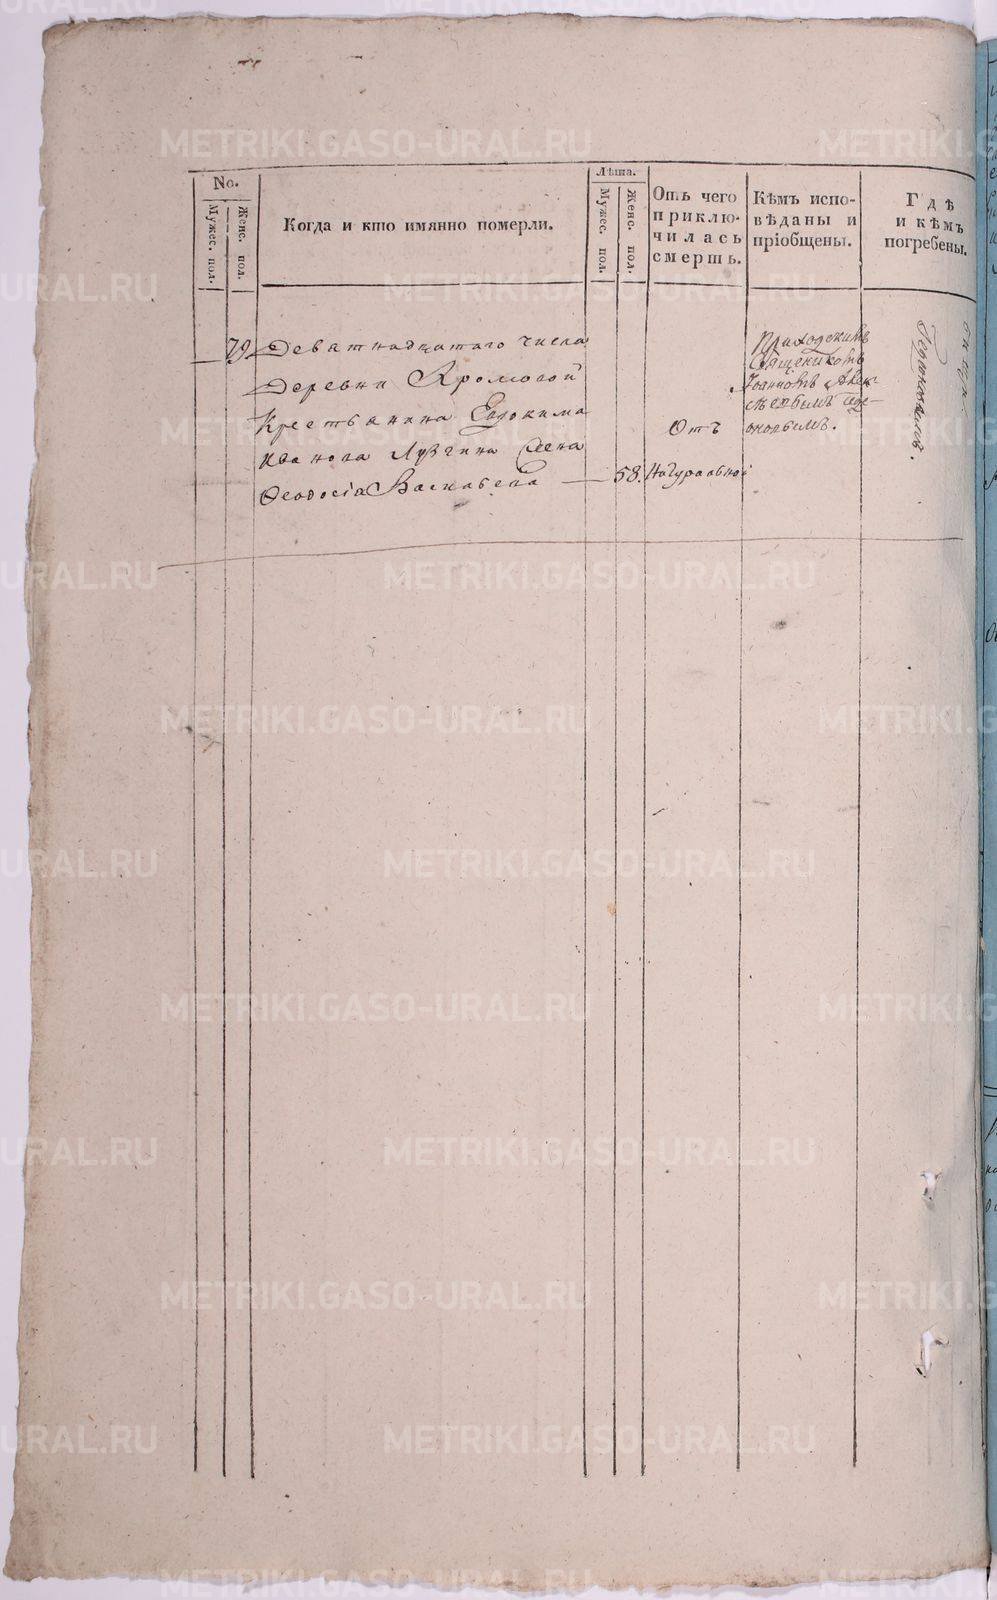 No.
Мужес. пол.
Женс. пол.
Когда и кто имянно померли.
Лѣта.
Мужес. пол.
Женс. пол.
Отъ чего
приклю-
чилась
смерть.
Кѣмъ испо-
вѣданы и
пріобщены.
Гдѣ
и кѣмъ
погребены.
79
Деватнадцатаго числа
Деревни
Крестьянина Евдокима
Иванова Лузгина Жена
Ѳеодосіа Васильева
— 58.
Отъ
Натуральной
Приходскимъ
Священикомъ
Іоанномъ Алек-
METRIKI.GASO-URAL.RU